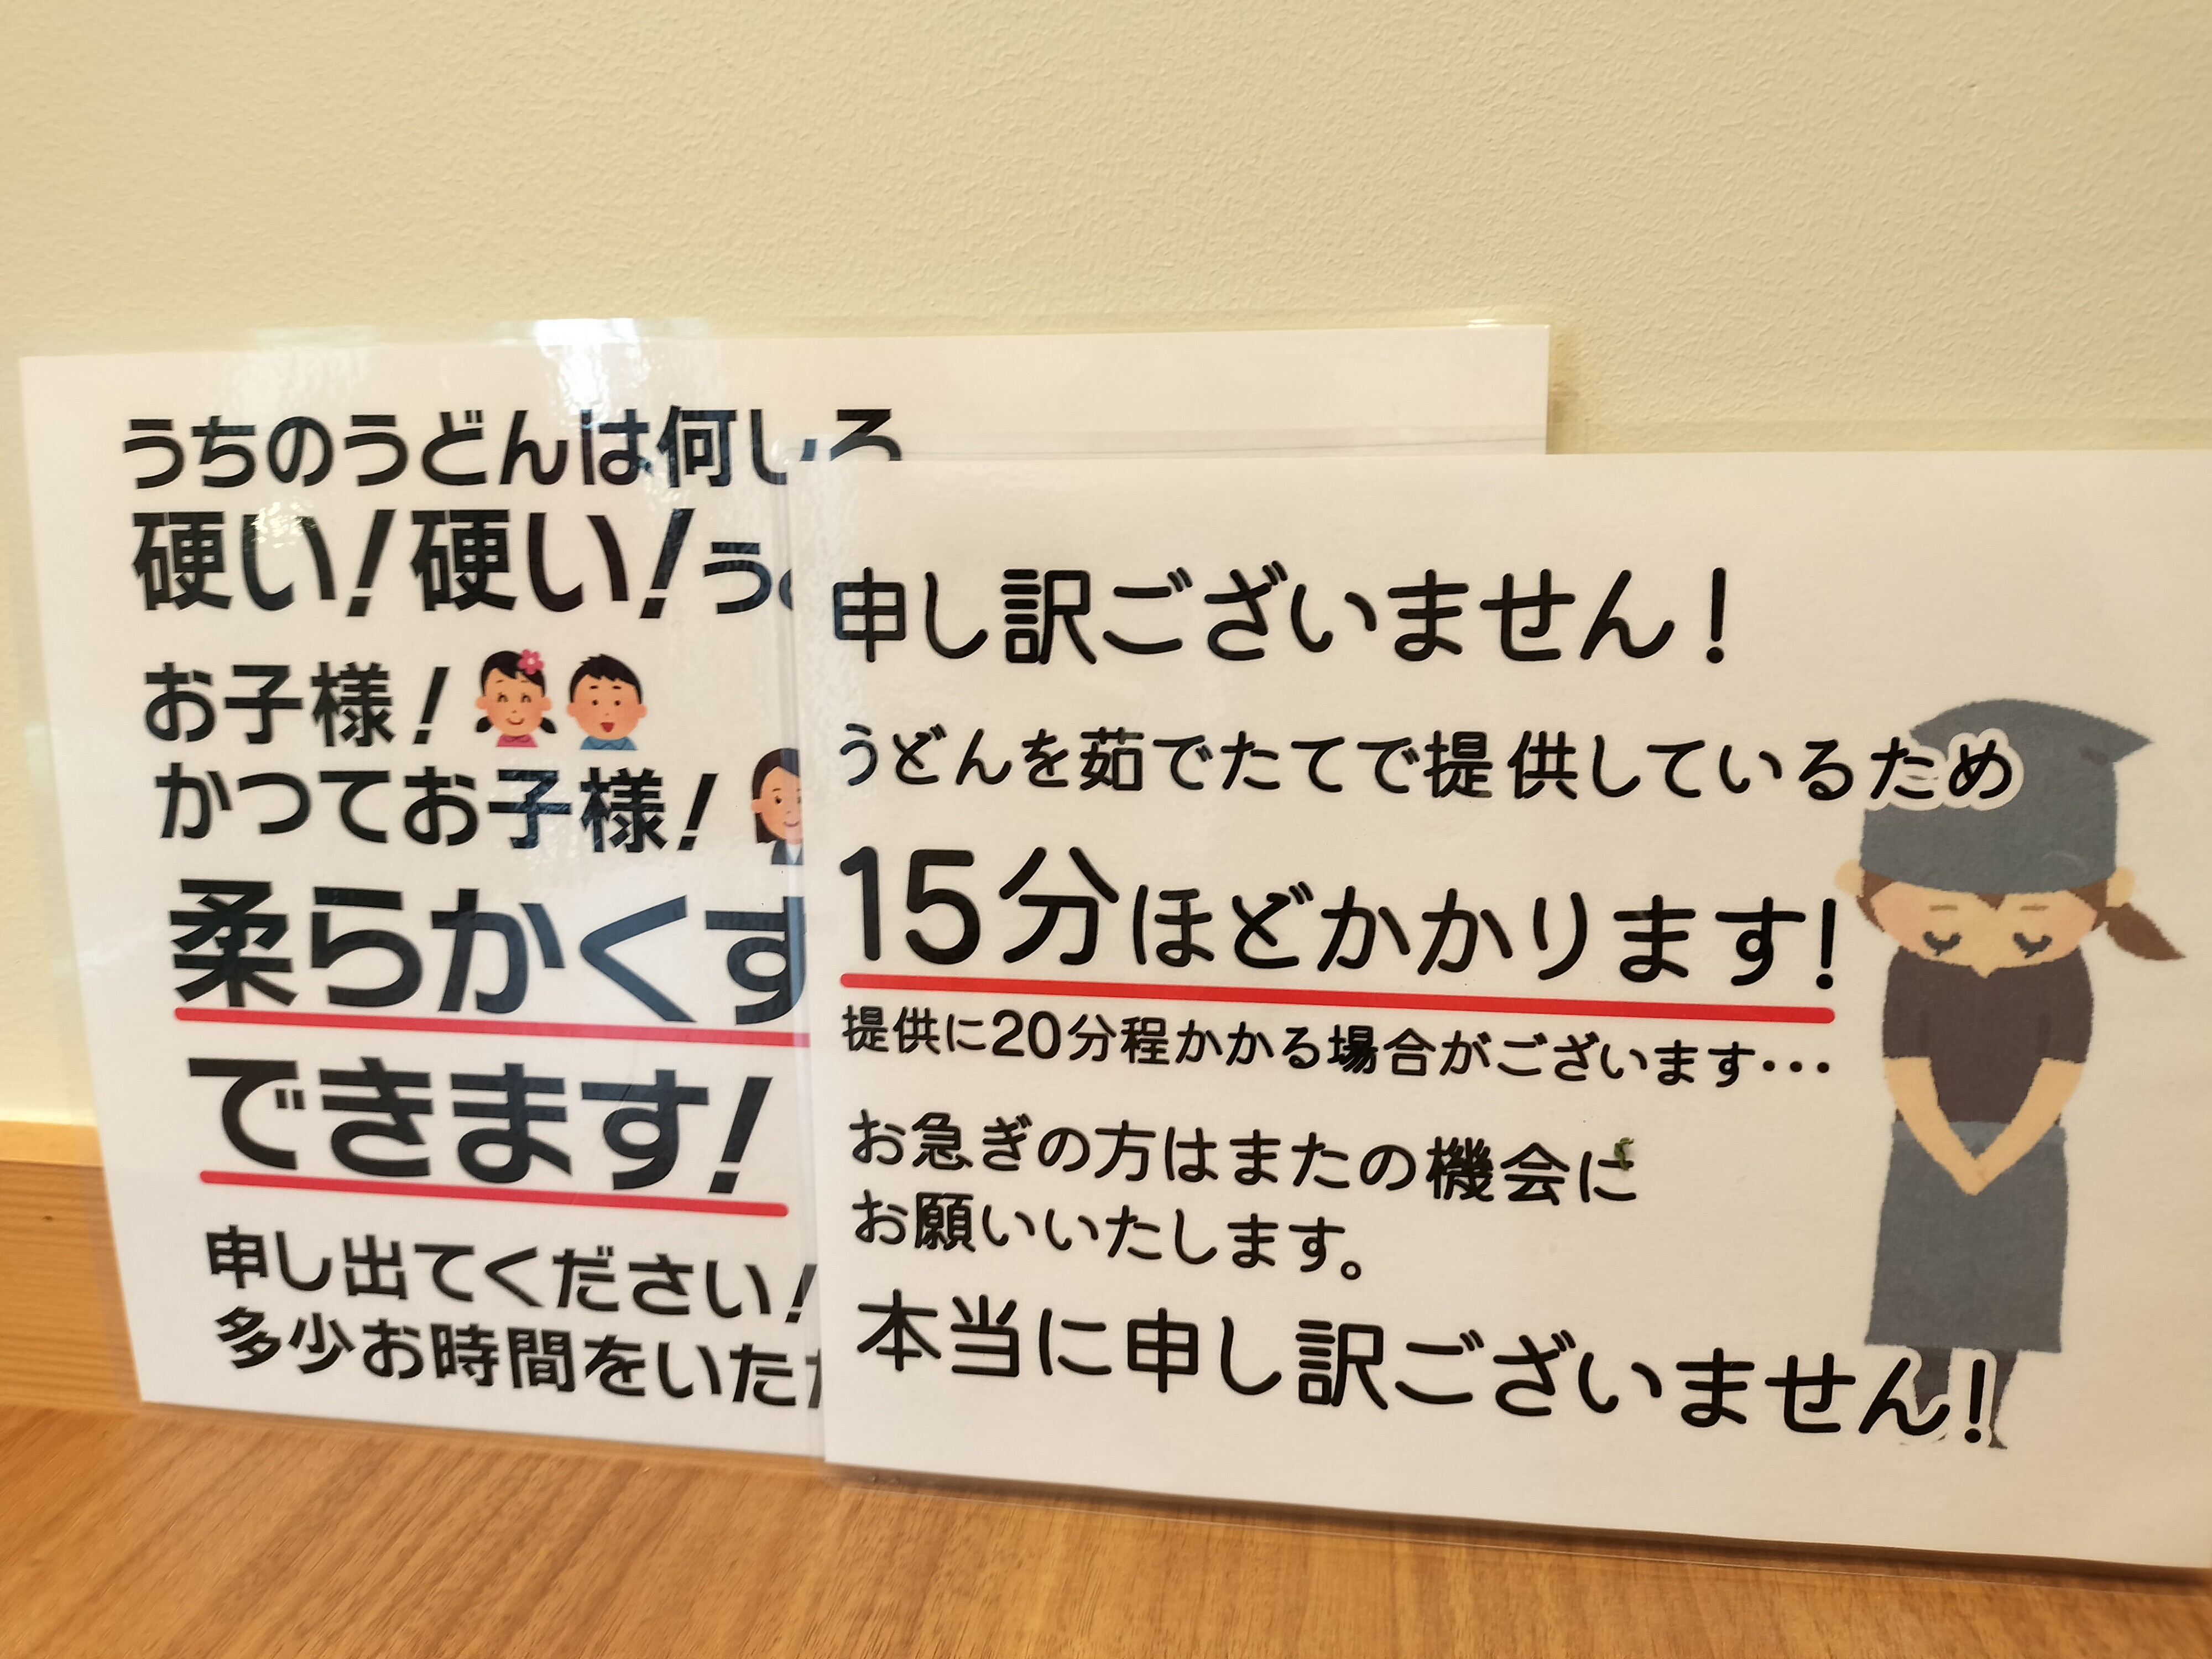 うちのうどんは何しろ
硬い！硬い！う
お子様！
かつてお子様！
柔らかくす
できます！
申し出てください！
多少お時間をいた
申し訳ございません！
うどんを茹でたてで提供しているため
15分ほどかかります！
提供に20分程かかる場合がございます･･･
お急ぎの方はまたの機会に
お願いいたします。
本当に申し訳ございません！